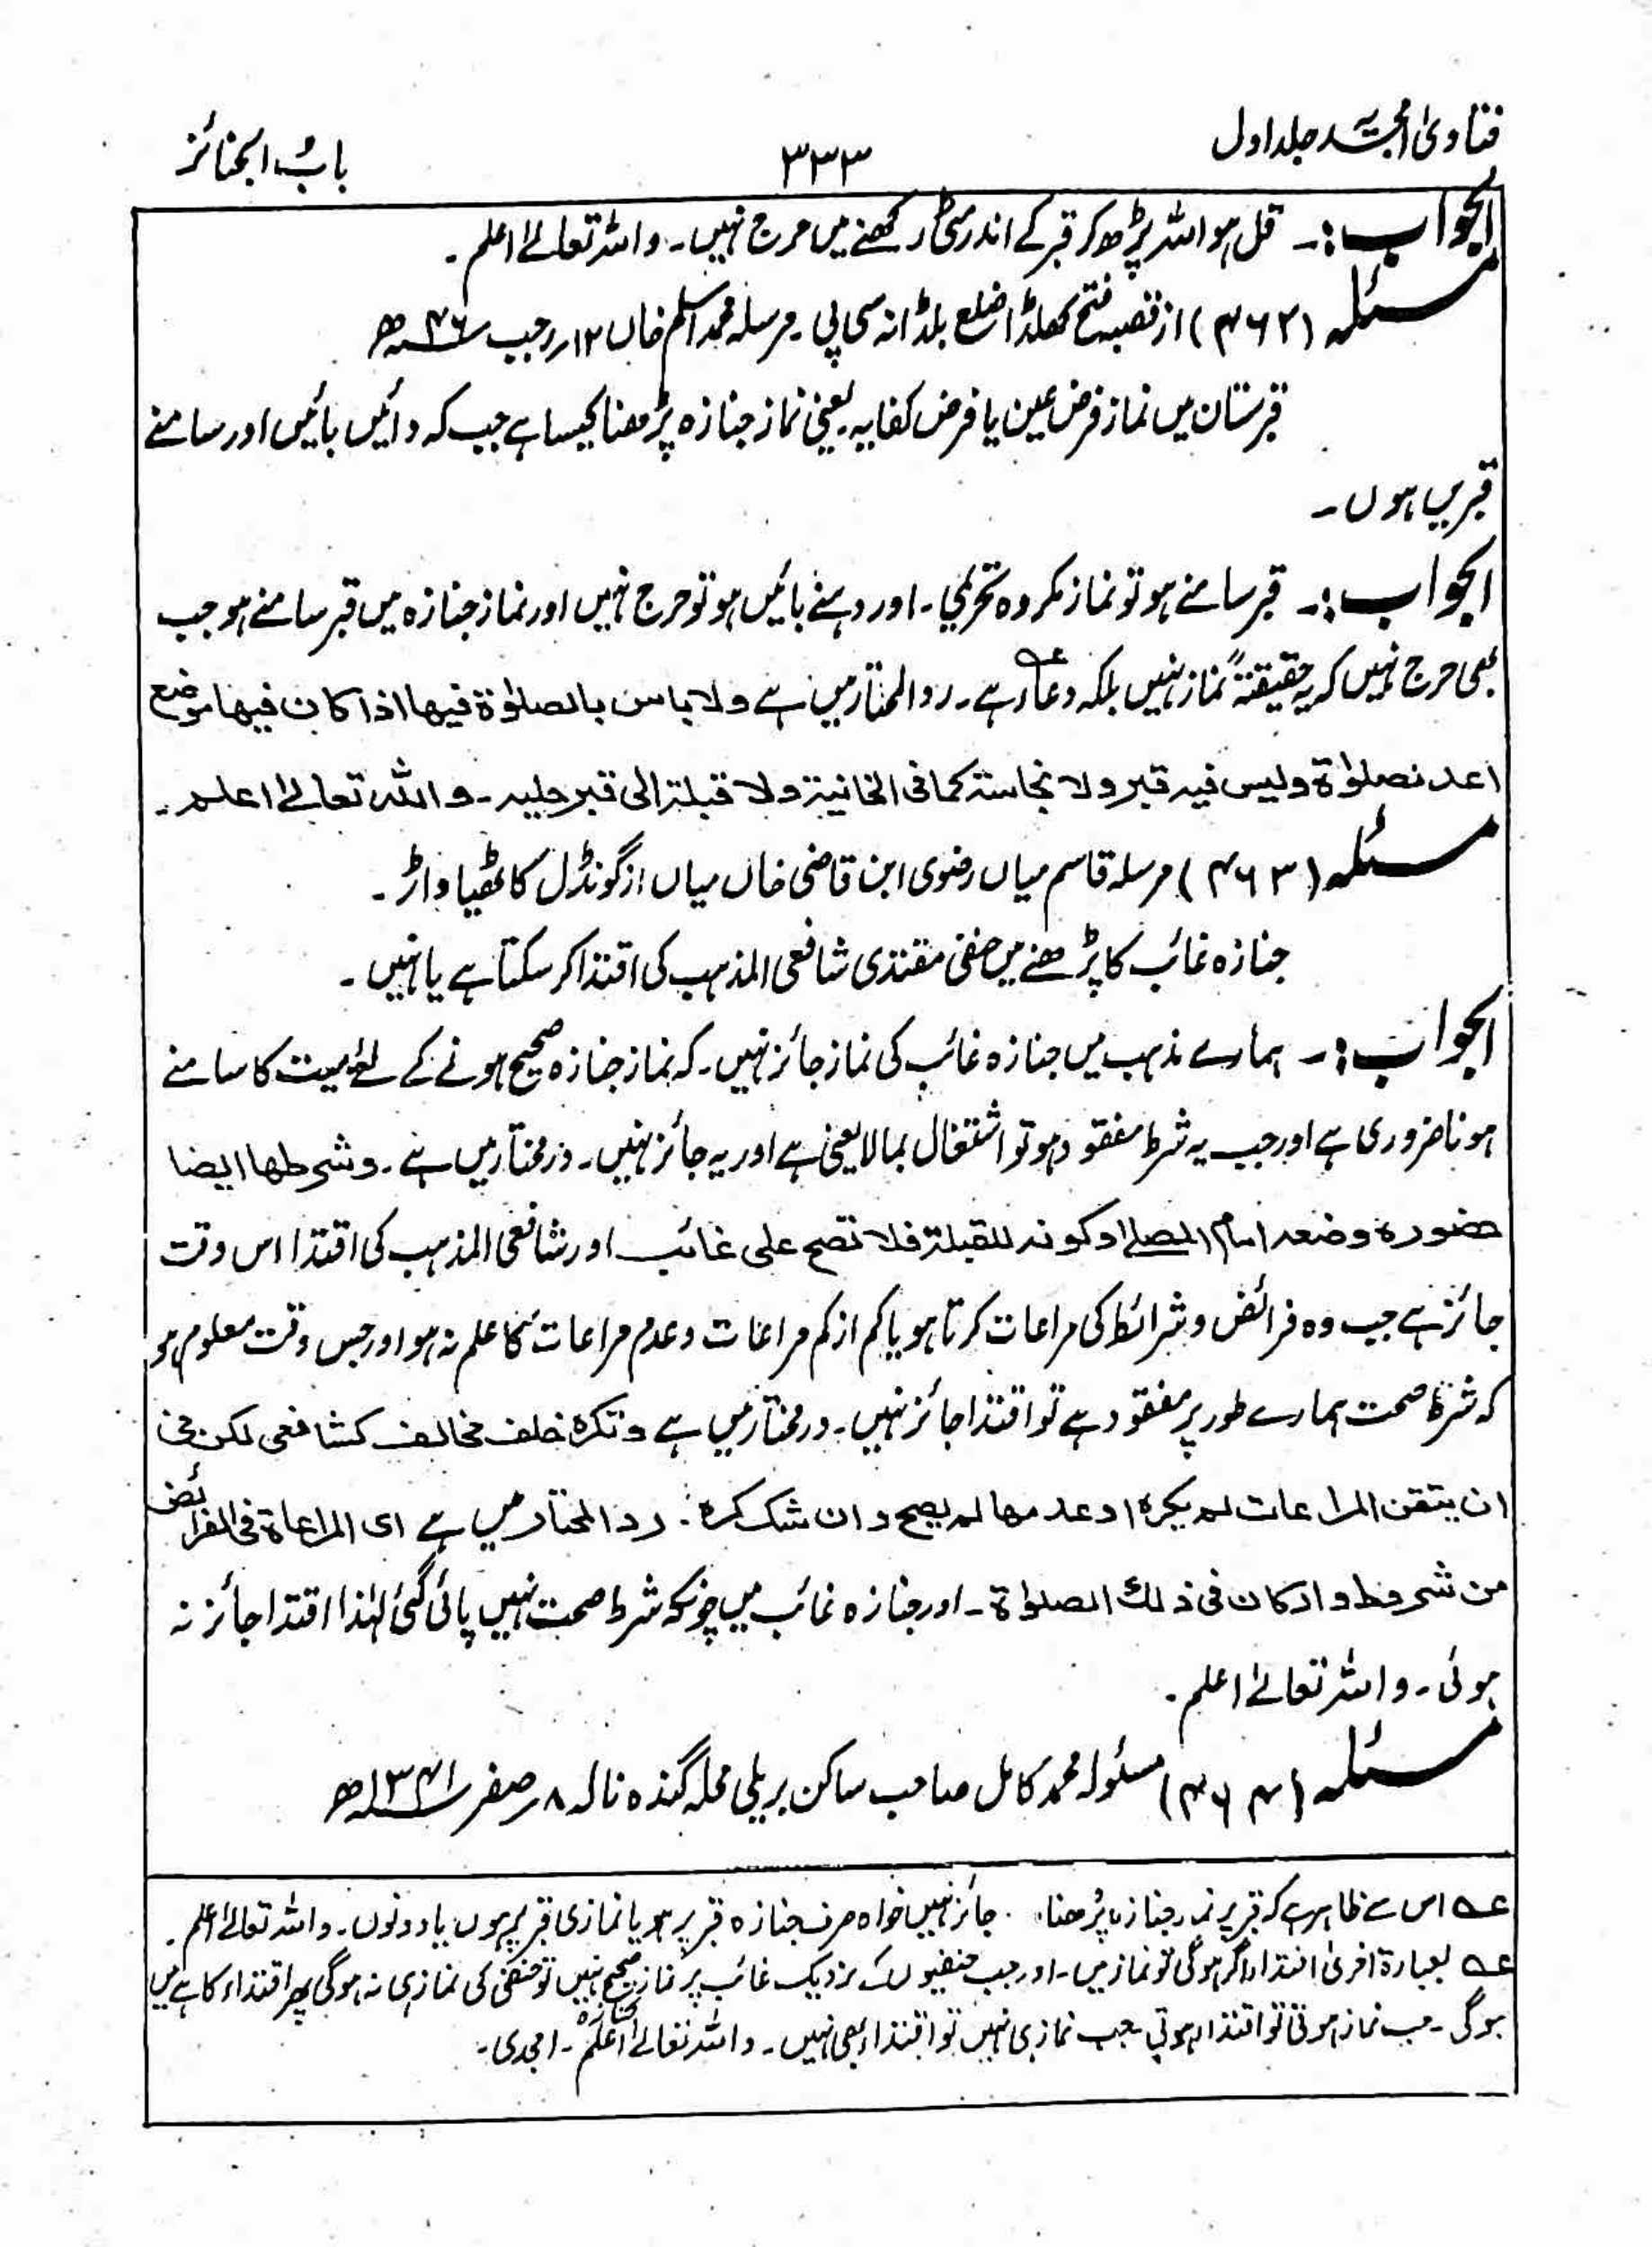 فتاویٰ امجدیہ جلد اول
۳۳۳
باب الجنائز
الجواب:۔ قل ہو اللہ پڑھ کر قبر کے اندر مٹی رکھنے میں حرج نہیں۔ واللہ تعالےٰ اعلم۔
مسئلہ (۴۶۲) از قصبہ فتح کھلڈا ضلع بلڈانہ سی پی۔ مرسلہ محمد اسلم خاں ۱۲؍ رجب ۴۶ھ
قبرستان میں نماز فرض عین یا فرض کفایہ یعنی نماز جنازہ پڑھنا کیسا ہے جب کہ دائیں بائیں اور سامنے
قبریں ہوں۔
الجواب:۔ قبر سامنے ہو تو نماز مکروہ تحریمی۔ اور دہنے بائیں ہو تو حرج نہیں اور نماز جنازہ میں قبر سامنے ہو جب
بھی حرج نہیں کہ یہ حقیقۃً نماز نہیں بلکہ دعا ہے۔ رد المحتار میں ہے ولا باس بالصلوٰۃ فیھا اذا کان فیھا موضع
اعد للصلوٰۃ ولیس فیہ قبر ولا نجاسۃ کما فی الخانیۃ ولا قبلتہ الی قبر حلیہ۔ واللہ تعالےٰ اعلم۔
مسئلہ (۴۶۳) مرسلہ قاسم میاں رضوی ابن قاضی خاں میاں از گونڈل کاٹھیاواڑ۔
جنازہ غائب کا پڑھنے میں حنفی مقتدی شافعی المذہب کی اقتدا کر سکتا ہے یا نہیں۔
الجواب:۔ ہمارے مذہب میں جنازہ غائب کی نماز جائز نہیں۔ کہ نماز جنازہ صحیح ہونے کے لئے میت کا سامنے
ہونا ضروری ہے اور جب یہ شرط مفقود ہو تو اشتغال بمالایعنی ہے اور یہ جائز نہیں۔ درمختار میں ہے۔ وشرطھا ایضا
حضورہ ووضعہ امام المصلی او کونہ للقبلۃ فلا تصح علی غائب اور شافعی المذہب کی اقتدا اس وقت
جائز ہے جب وہ فرائض و شرائط کی مراعات کرتا ہو یا کم از کم مراعات و عدم مراعات کا علم نہ ہو اور جس وقت معلوم ہو
کہ شرط صحت ہمارے طور پر مفقود ہے تو اقتدا جائز نہیں۔ درمختار میں ہے وتکرہ خلف مخالف کشافعی لکن فی
ان یتقن المراعات لم یکرہ او عدمھا لم یصح وان شک کرہ۔ رد المحتار میں ہے ای المراعاۃ فی الفرائض
من شروط وارکان فی ذلک الصلوٰۃ۔ اور جنازہ غائب میں چونکہ شرط صحت نہیں پائی گئی لہٰذا اقتدا جائز نہ
ہوئی۔ واللہ تعالےٰ اعلم۔
مسئلہ (۴۶۴) مسئولہ محمد کامل صاحب ساکن بریلی محلہ گندہ نالہ ۸؍ صفر ۱۳۴۱ھ
عہ اس سے ظاہر ہے کہ قبر پر نماز جنازہ پڑھنا جائز نہیں خواہ صرف جنازہ قبر پر ہو یا نمازی قبر پر ہوں یا دونوں۔ واللہ تعالےٰ اعلم۔
عہ بعبارۃ اخریٰ اقتدا اگر ہوگی تو نماز میں۔ اور جب حنفیوں کے نزدیک غائب پر نماز جنازہ صحیح نہیں تو حنفی کی نماز ہی نہ ہوگی پھر اقتداء کاہے میں
ہوگی۔ جب نماز ہوتی تو اقتداء ہوتی جب نماز ہی نہیں تو اقتداء بھی نہیں۔ واللہ تعالےٰ اعلم۔ امجدی۔